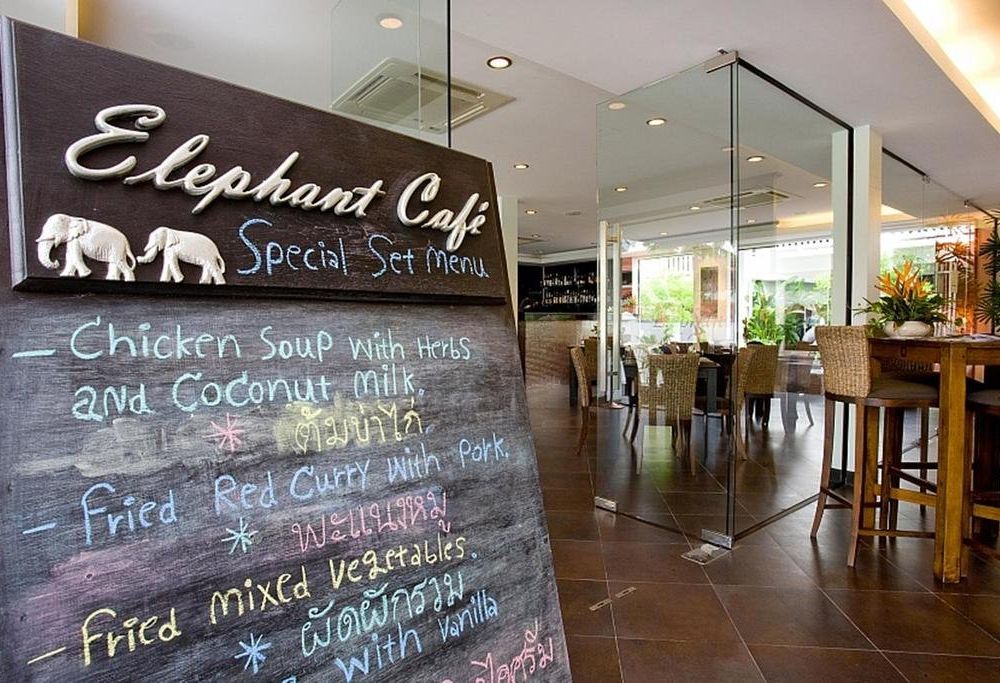 Elephant Café
Special Set Menu
— Chicken Soup with Herbs
and Coconut Milk.
* ต้มข่าไก่
— Fried Red Curry with Pork.
* พะแนงหมู
— Fried mixed vegetables.
* ผัดผักรวม
with vanilla